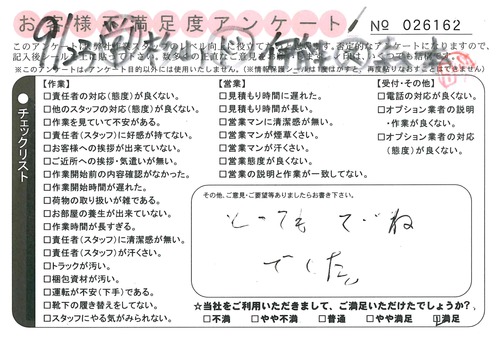 お客様不満足度アンケート
No 026162
このアンケートは弊社作業スタッフのレベル向上に役立てたいと
記入後シールを上に貼って下さい。
※このアンケートは、アンケート目的以外には使用いたしません。(※情報保護シールは1度はがすと、再度粘りなおすことはできません)
チェックリスト
【作業】
□責任者の対応(態度)が良くない。
□他のスタッフの対応(態度)が良くない。
□作業を見ていて不安がある。
□責任者(スタッフ)に好感が持てない。
□お客様への挨拶が出来ていない。
□ご近所への挨拶・気遣いが無い。
□作業開始前の内容確認がなかった。
□作業開始時間が遅れた。
□荷物の取り扱いが雑である。
□お部屋の養生が出来ていない。
□作業時間が長すぎる。
□責任者(スタッフ)に清潔感が無い。
□責任者(スタッフ)が汗くさい。
□トラックが汚い。
□梱包資材が汚い。
□運転が不安(下手)である。
□靴下の履き替えをしてない。
□スタッフにやる気がみられない。
【営業】
□見積もり時間に遅れた。
□見積もり時間が長い。
□営業マンに清潔感が無い。
□営業マンが煙草くさい。
□営業マンが汗くさい。
□営業態度が良くない。
□営業の説明と作業が一致してない。
【受付・その他】
□電話の対応が良くない。
□オプション業者の説明・作業が良くない。
□オプション業者の対応(態度)が良くない。
その他、ご意見・ご要望等ありましたらお書き下さい。
とってもていね
でした。
☆当社をご利用いただきまして、ご満足いただけたでしょうか?
□不満 □やや不満 □普通 □やや満足 ☑満足